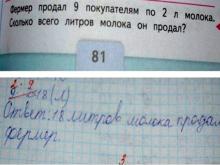 Фермер продал 9 покупателям по 2 л молока.
Сколько всего литров молока он продал?
81
=18(л)
Ответ: 18 литров молока продал
фермер.